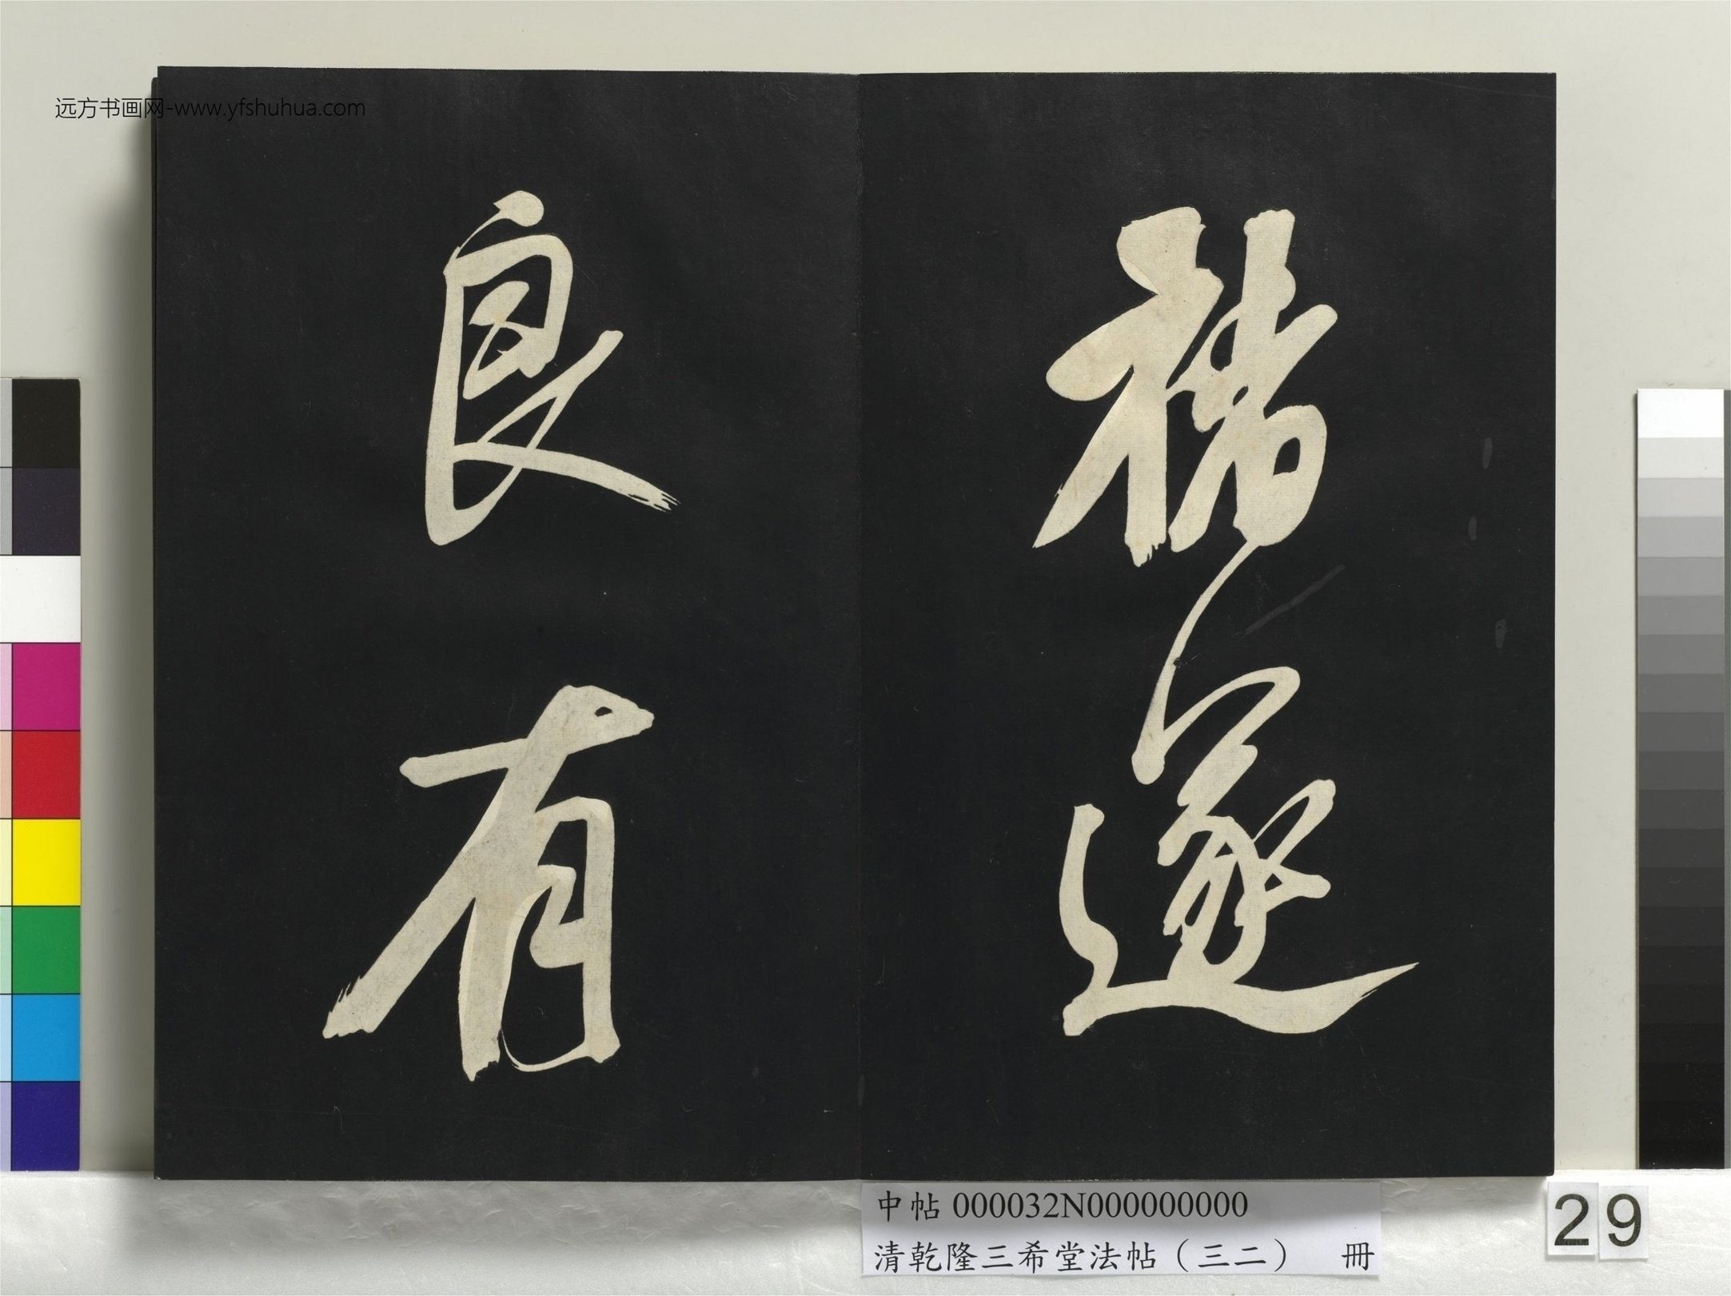 远方书画网-www.yfshuhua.com
褚遂
良有
中帖 000032N000000000
清乾隆三希堂法帖（三二） 冊
29